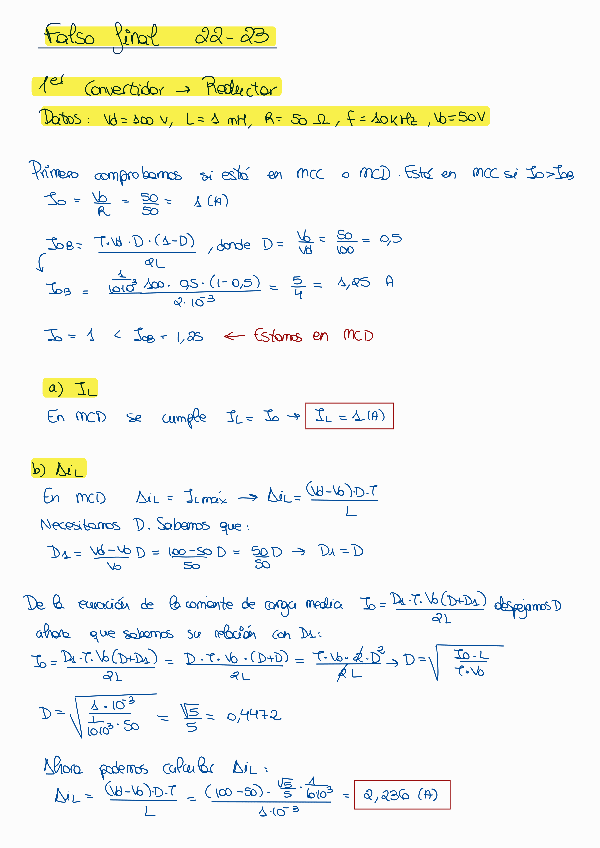 Falso final 22-23
1er Convertidor → Reductor
Datos: Vd = 100 V, L = 1 mH, R = 50 Ω, f = 10 kHz, Vo = 50V
Primero comprobamos si está en MCC o MCD. Está en MCC si Io > IoB
Io = Vo/R = 50/50 = 1 (A)
IoB = T·Vd·D·(1-D)/2L, donde D = Vo/Vd = 50/100 = 0,5
IoB = 1/10·10³ 100·0,5·(1-0,5)/2·10⁻³ = 5/4 = 1,25 A
Io = 1 < IoB = 1,25 ← Estamos en MCD
a) IL
En MCD se cumple IL = Io → IL = 1 (A)
b) ΔiL
En MCD ΔiL = ILmáx → ΔiL = (Vd-Vo)·D·T/L
Necesitamos D. Sabemos que:
D1 = Vd-Vo/Vo D = 100-50/50 D = 50/50 D → D1 = D
De la ecuación de la corriente de carga media Io = D1·T·Vo(D+D1)/2L despejamos D
ahora que sabemos su relación con D1:
Io = D1·T·Vo(D+D1)/2L = D·T·Vo·(D+D)/2L = T·Vo·2·D²/2L → D = √Io·L/T·Vo
D = √1·10⁻³/1/10·10³·50 = √5/5 = 0,4472
Ahora podemos calcular ΔiL:
ΔiL = (Vd-Vo)·D·T/L = (100-50)·√5/5·1/10·10³/1·10⁻³ = 2,236 (A)